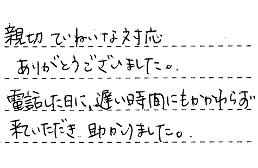 親切でねいな対応
ありがとうございました。
電話した日に、遅い時間にもかかわらず
来ていただき助かりました。